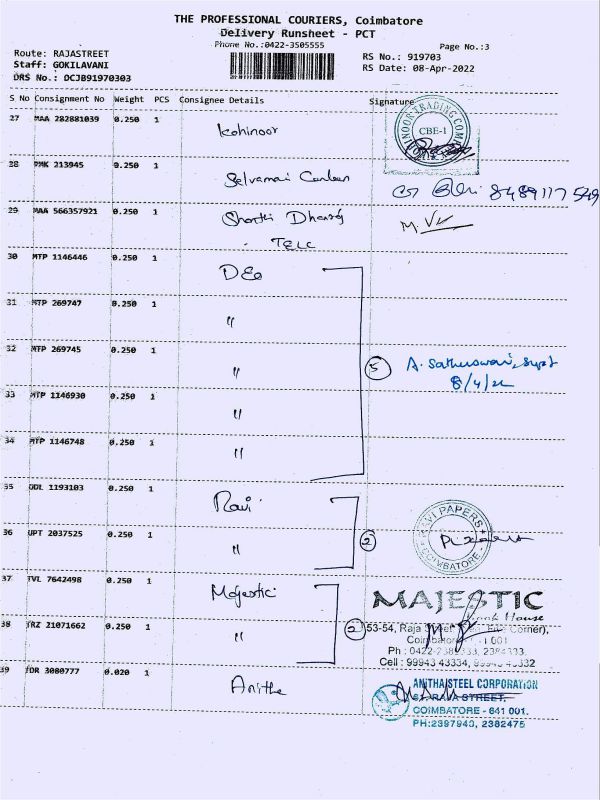 THE PROFESSIONAL COURIERS, Coimbatore
Delivery Runsheet - PCT
Phone No.:0422-3505555
Page No.:3
Route: RAJASTREET
Staff: GOKILAVANI
DRS No.: OCJB91970303
RS No.: 919703
RS Date: 08-Apr-2022
S No Consignment No Weight PCS Consignee Details Signature
27 MAA 282881039 0.250 1 Kohinoor
CBE-1
28 PMK 213945 0.250 1 Selvamani
8489117549
29 MAA 566357921 0.250 1 Shanthi
TELC
M.
30 MTP 1146446 0.250 1 DEO
31 MTP 269747 0.250 1 "
32 MTP 269745 0.250 1 "
5
8/4/22
33 MTP 1146930 0.250 1 "
34 MTP 1146748 0.250 1 "
35 ODL 1193103 0.250 1 Ravi
36 UPT 2037525 0.250 1 "
2
RAVI PAPERS
COIMBATORE
37 TVL 7642498 0.250 1 Majestic
MAJESTIC
Book House
38 TRZ 21071662 0.250 1 "
2
53-54, Raja Street Corner),
Ph : 0422-
Cell : 99943 43334,
39 IDR 3080777 0.020 1 Anitha
ANITHA STEEL CORPORATION
RAJA STREET,
COIMBATORE - 641 001.
PH:2397943, 2382475